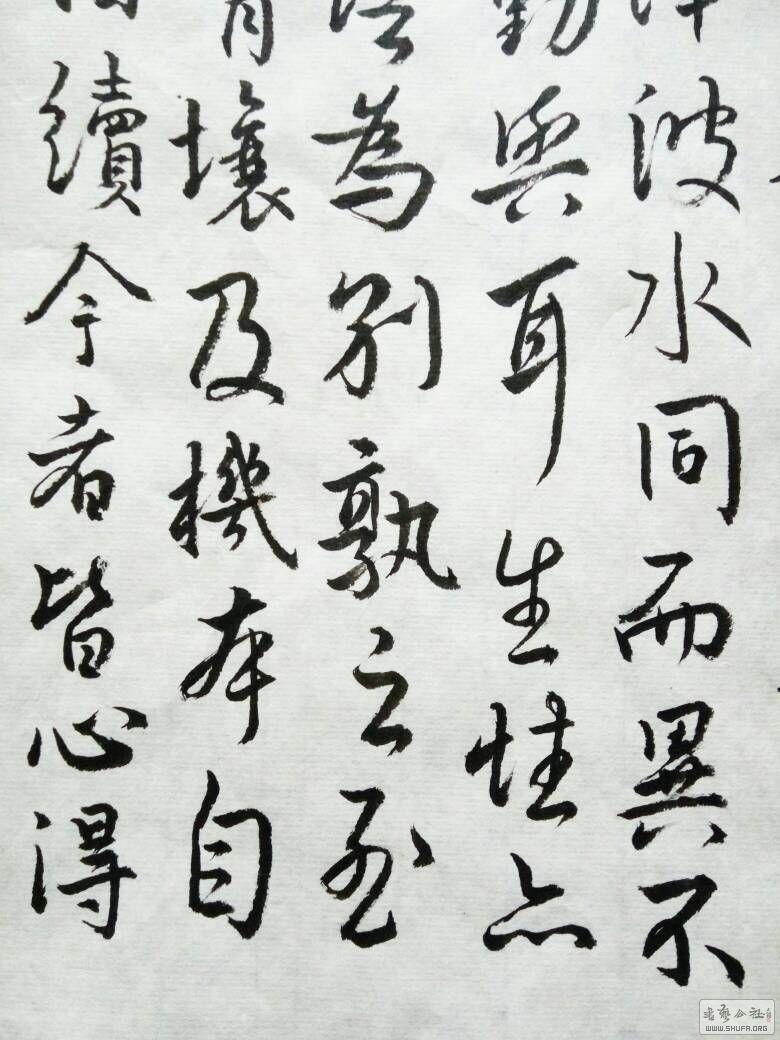 波水同而異不
與耳生性亦
為別孰之至
壤及機本自
續今者皆心得
書藝公社
WWW.SHUFA.ORG